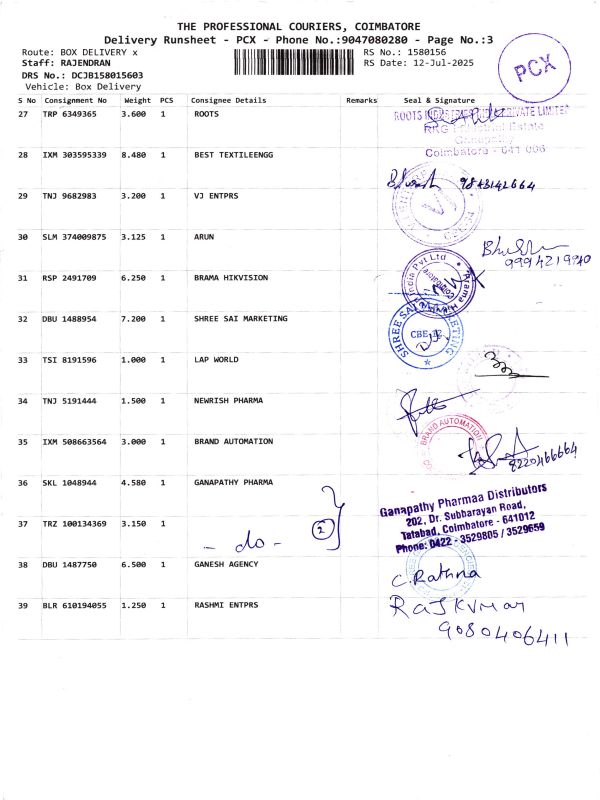 THE PROFESSIONAL COURIERS, COIMBATORE
Delivery Runsheet - PCX - Phone No.:9047080280 - Page No.:3
Route: BOX DELIVERY x
RS No.: 1580156
Staff: RAJENDRAN
RS Date: 12-Jul-2025
DRS No.: DCJB158015603
Vehicle: Box Delivery
PCX
S No Consignment No Weight PCS Consignee Details Remarks Seal & Signature
27 TRP 6349365 3.600 1 ROOTS
ROOTS INDUSTRIES INDIA PRIVATE LIMITED
RRG Industrial Estate
Ganapathy
Coimbatore - 641 006
28 IXM 303595339 8.480 1 BEST TEXTILEENGG
9843142664
29 TNJ 9682983 3.200 1 VJ ENTPRS
30 SLM 374009875 3.125 1 ARUN
9994219940
31 RSP 2491709 6.250 1 BRAMA HIKVISION
India Pvt Ltd
Coimbatore
32 DBU 1488954 7.200 1 SHREE SAI MARKETING
SHREE SAI MARKETING
CBE-12
33 TSI 8191596 1.000 1 LAP WORLD
34 TNJ 5191444 1.500 1 NEWRISH PHARMA
35 IXM 508663564 3.000 1 BRAND AUTOMATION
BRAND AUTOMATION
8220466664
36 SKL 1048944 4.580 1 GANAPATHY PHARMA
Ganapathy Pharmaa Distributors
202, Dr. Subbarayan Road,
Tatabad, Coimbatore - 641012
Phone: 0422 - 3529805 / 3529659
37 TRZ 100134369 3.150 1
- do - 2
38 DBU 1487750 6.500 1 GANESH AGENCY
C. Rathna
39 BLR 610194055 1.250 1 RASHMI ENTPRS
RAJKUMAR
9080406411